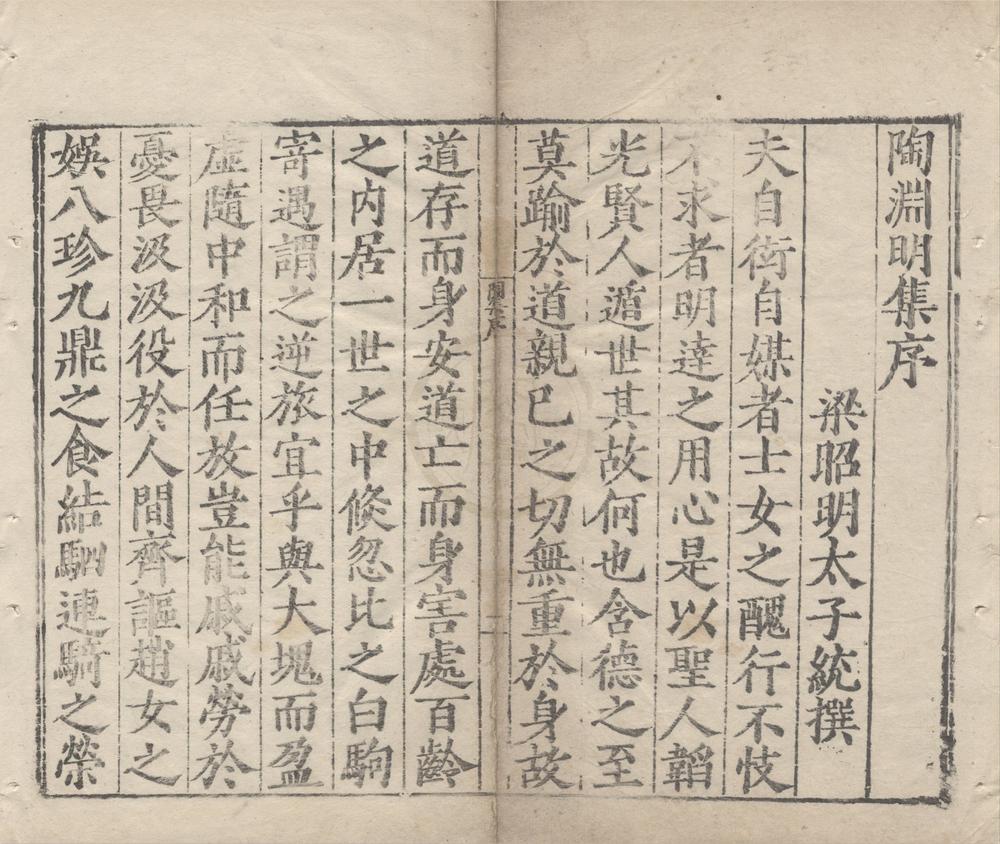 陶淵明集序
梁昭明太子統撰
夫自衒自媒者士女之醜行不忮
不求者明達之用心是以聖人韜
光賢人遁世其故何也含德之至
莫踰於道親己之切無重於身故
道存而身安道亡而身害處百齡
之内居一世之中倐忽比之白駒
寄遇謂之逆旅宜乎與大塊而盈
虛隨中和而任放豈能戚戚勞於
憂畏汲汲役於人間齊謳趙女之
娛八珍九鼎之食結駟連騎之榮